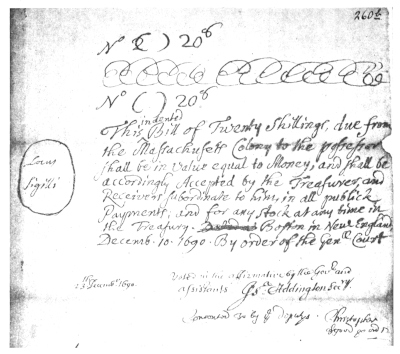 260b
No ( ) 20s
No ( ) 20s
indented
This Bill of Twenty Shillings, due from
the Massachusett Colony to the possessor
shall be in value equal to Money, and shall be
accordingly Accepted by the Treasurer, and
Receivers subordinate to him, in all publick
Payments, and for any Stock at any time in
the Treasury. Boston in New England
Decemb. 10. 1690. By order of the Genll Court
Locus
Sigili
Voted in the affirmative by the Govr and
assistants Jsa Addington Secry
Consented to by ye deputys